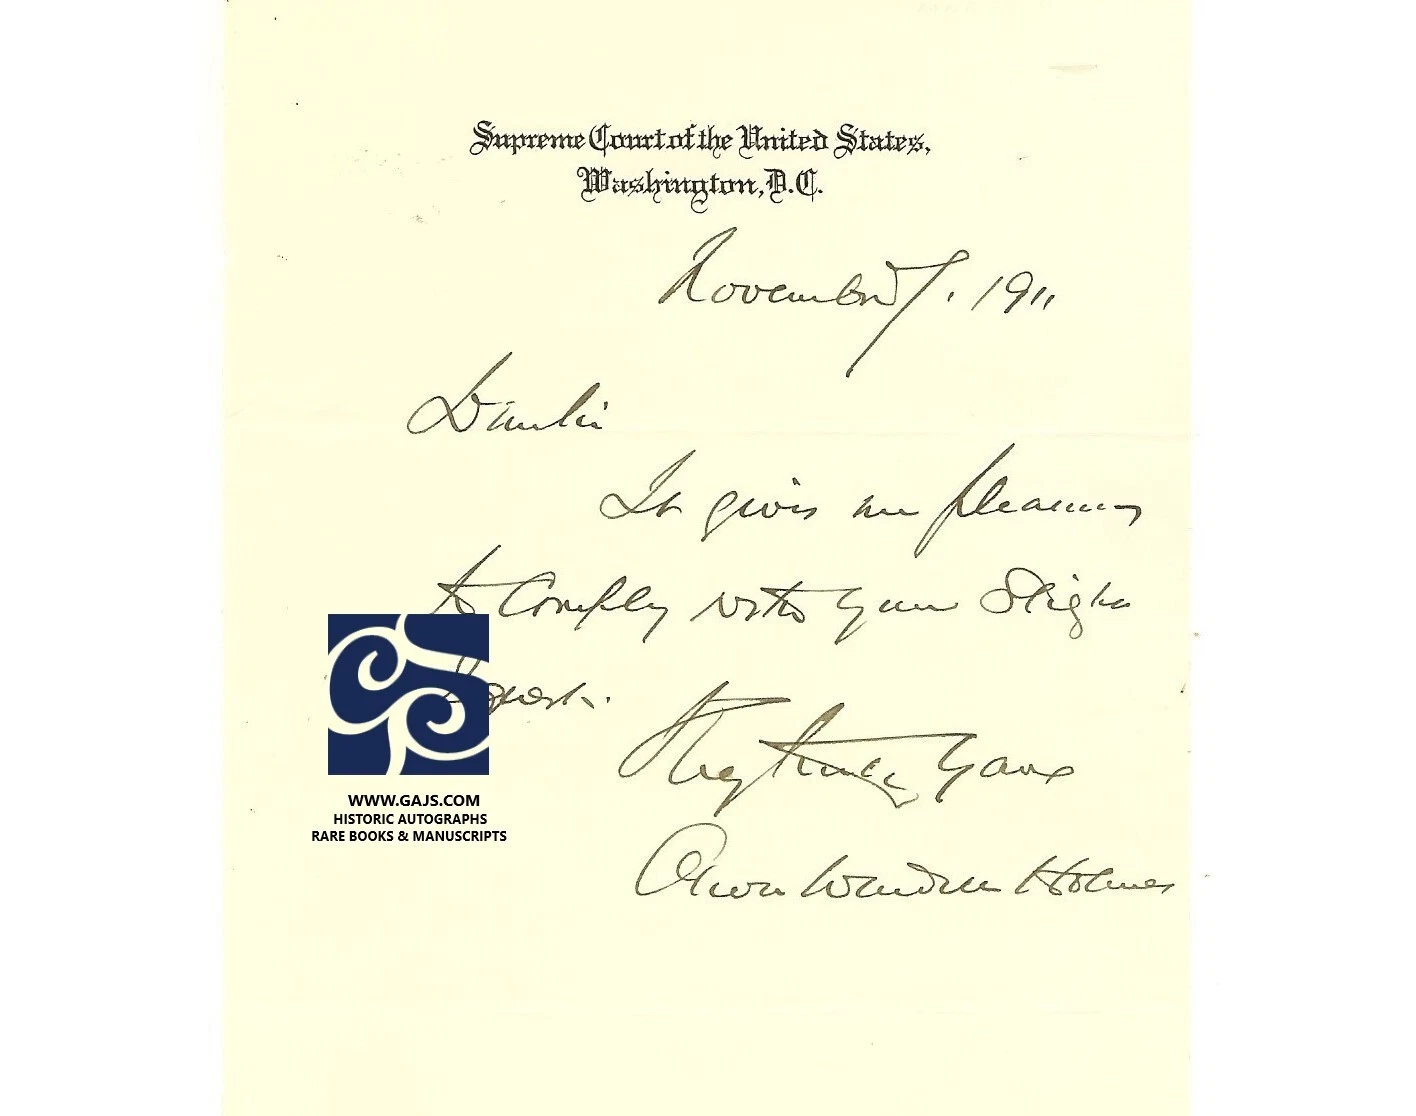 Supreme Court of the United States,
Washington, D.C.
November 7. 1911
Dear Sir
It gives me pleasure
to comply with your slight
request.
Very truly yours
Oliver Wendell Holmes
WWW.GAJS.COM
HISTORIC AUTOGRAPHS
RARE BOOKS & MANUSCRIPTS